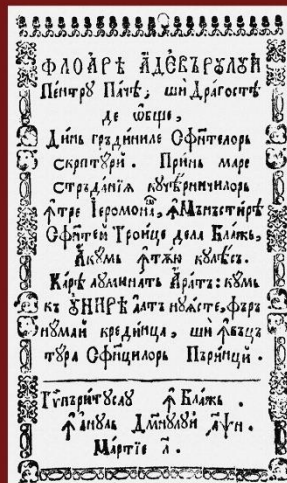 ФЛОАРѢ АДЕВЪРꙋЛꙋЙ
Пентрꙋ Паче; ши Драгосте
де ѡбще,
Динь грьдиниле Сфинтелорь
скрптꙋри. Принь маре
стрьданїѧ кꙋчерничилорь
ꙟтре Іеромона, ꙟ Мънъстирѣ
Сфинтей Троице дела Блажь,
Акꙋмь ꙟтѫю кꙋлѣсъ.
Каре лꙋминать Арать: кꙋмь
къ ОУНИРѢ алть нꙋѧсте, фъръ
нꙋмай крединца, ши ꙟвъцъ
тꙋра Сфинцилорь Пъринци.
Типъритꙋсаꙋ ꙟ Блажь.
ꙟ анꙋль Дмнꙋлꙋй ҂аѱн.
Мартїе